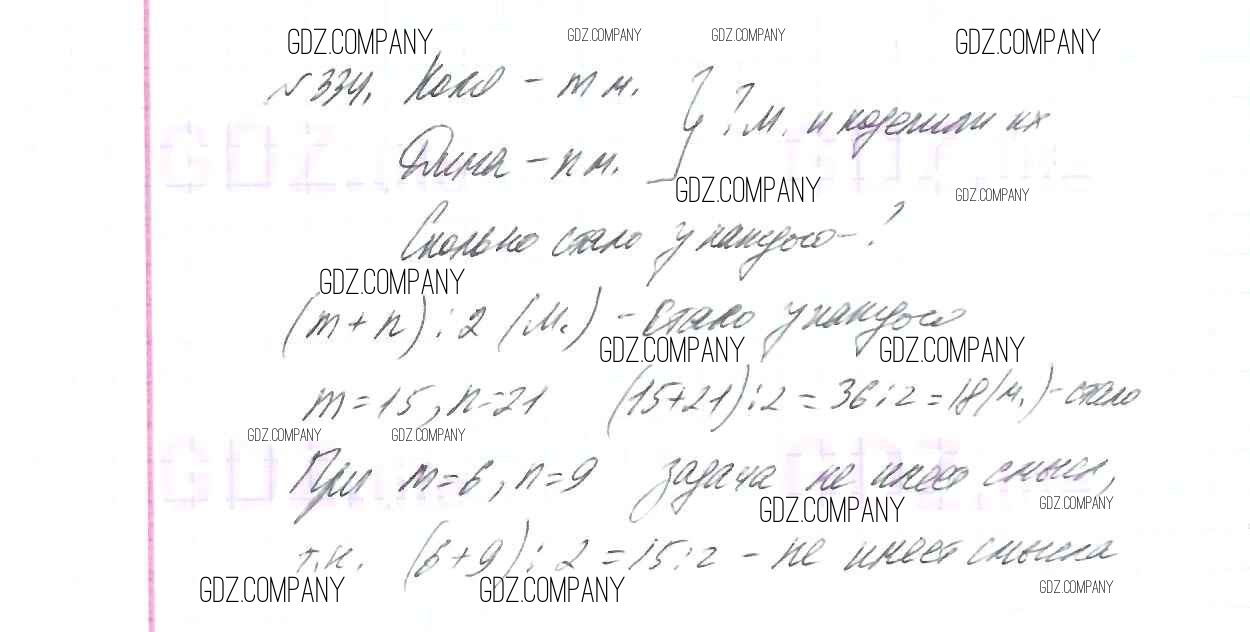 GDZ.COMPANY GDZ.COMPANY GDZ.COMPANY GDZ.COMPANY
№334. Коля – m м.
? м. и поделили их
Дима – n м.
GDZ.COMPANY GDZ.COMPANY
Сколько стало у каждого – ?
GDZ.COMPANY
(m+n):2 (м.) – стало у каждого
GDZ.COMPANY GDZ.COMPANY
m=15, n=21 (15+21):2=36:2=18(м.) – стало
GDZ.COMPANY GDZ.COMPANY
При m=6, n=9 задача не имеет смысл,
GDZ.COMPANY GDZ.COMPANY
т.к. (6+9):2=15:2 – не имеет смысла
GDZ.COMPANY GDZ.COMPANY GDZ.COMPANY